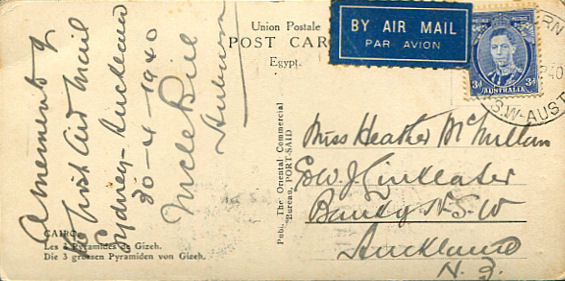 A memento of
first Air Mail
Sydney - Auckland
30-4-1940
Uncle Bill
Auburn
Union Postale
POST CAR
Egypt.
BY AIR MAIL
PAR AVION
3d 3d
ERN
N.S.W-AUST
Publ. The Oriental Commercial
Bureau, PORT-SAID
Miss Heather McMillan
W. J.
N.S.W
Auckland
N.Z.
CAIRO
Les 3 Pyramides de Gizeh.
Die 3 grossen Pyramiden von Gizeh.